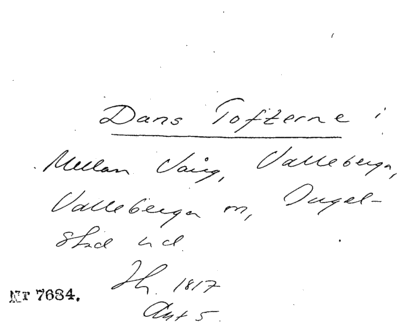 Dans Tofterne i
Mellan Vång, Valleberga,
Valleberga sn, Ingel-
stad hd.
Jh. 1817
Akt 5
NT 7684.